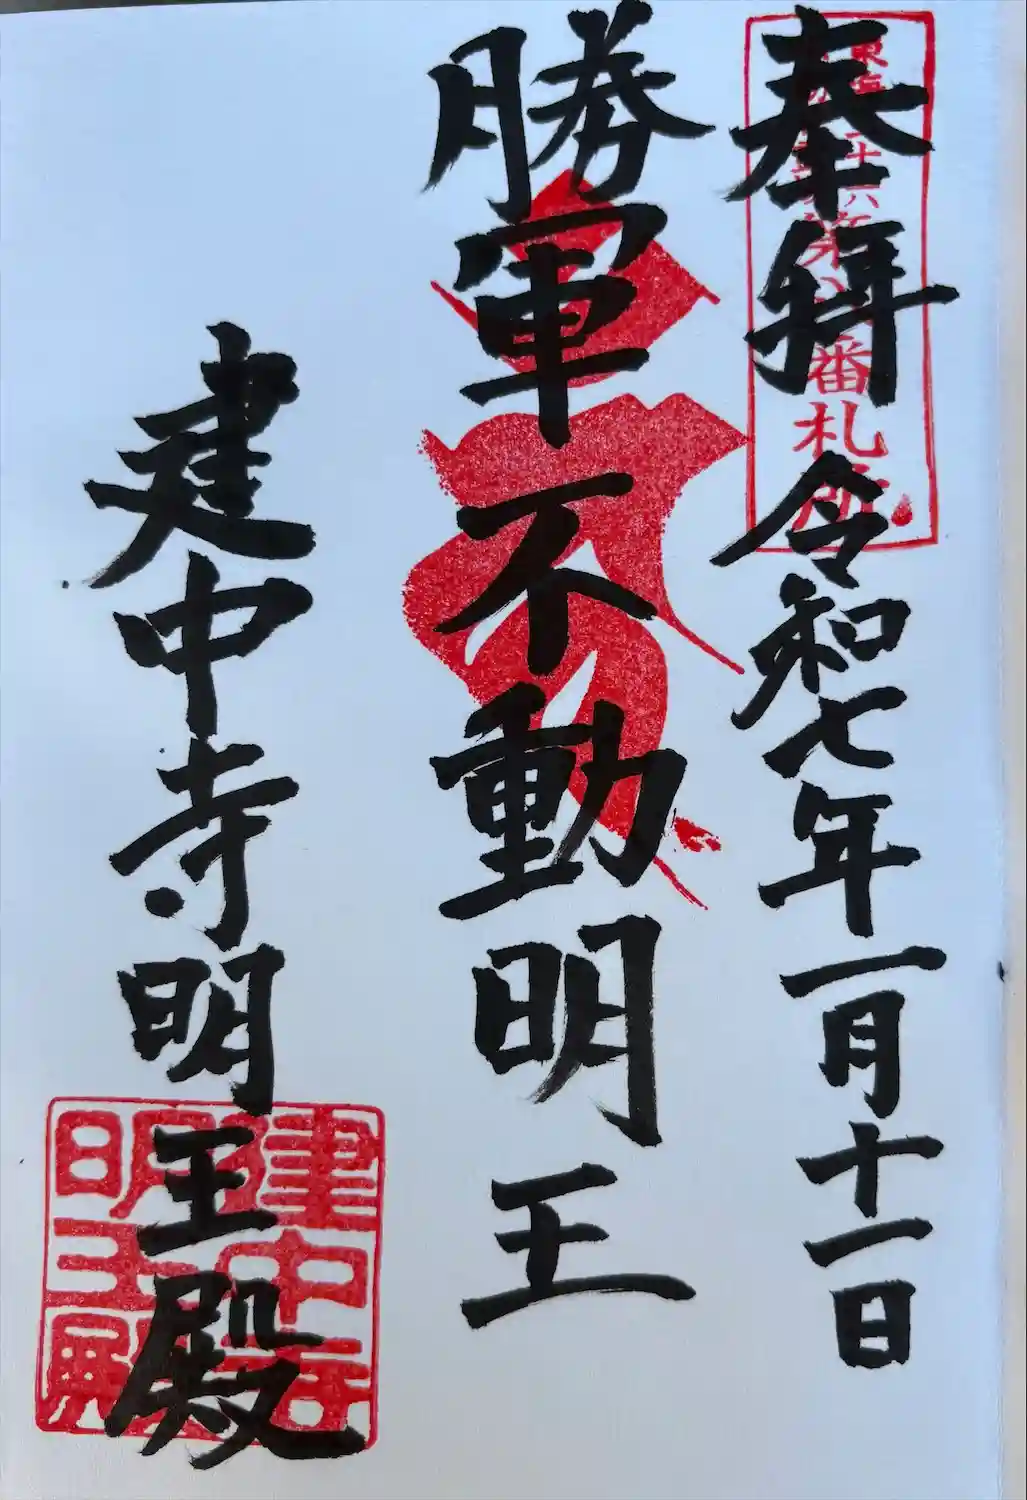 奉拝 令和七年一月十一日
勝軍不動明王
建中寺明王殿
番札所
建中寺
明王殿